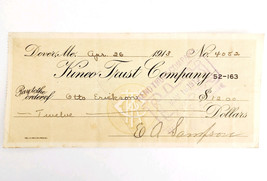 Dover, Me. Apr 26 1913 No. 4052
Kineo Trust Company 52-163
Pay to the order of Otto Erickson $12.00
Twelve Dollars
E A Sampson